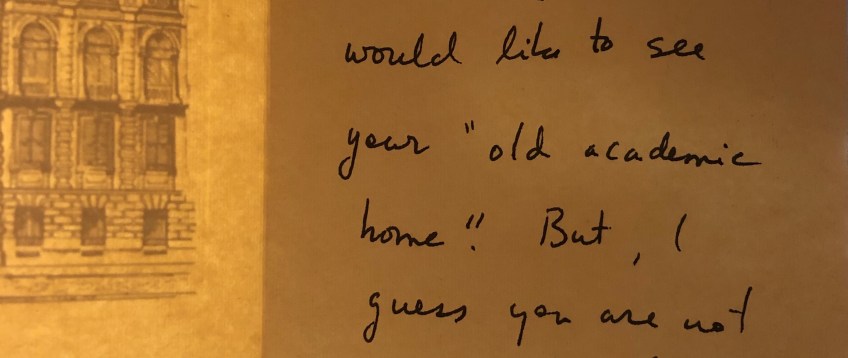 would like to see
your "old academic
home". But, I
guess you are not